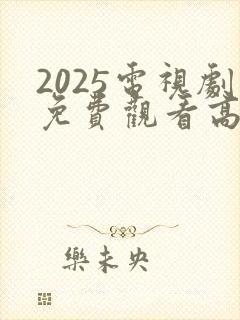 2025電視劇
免費觀看高
樂未央